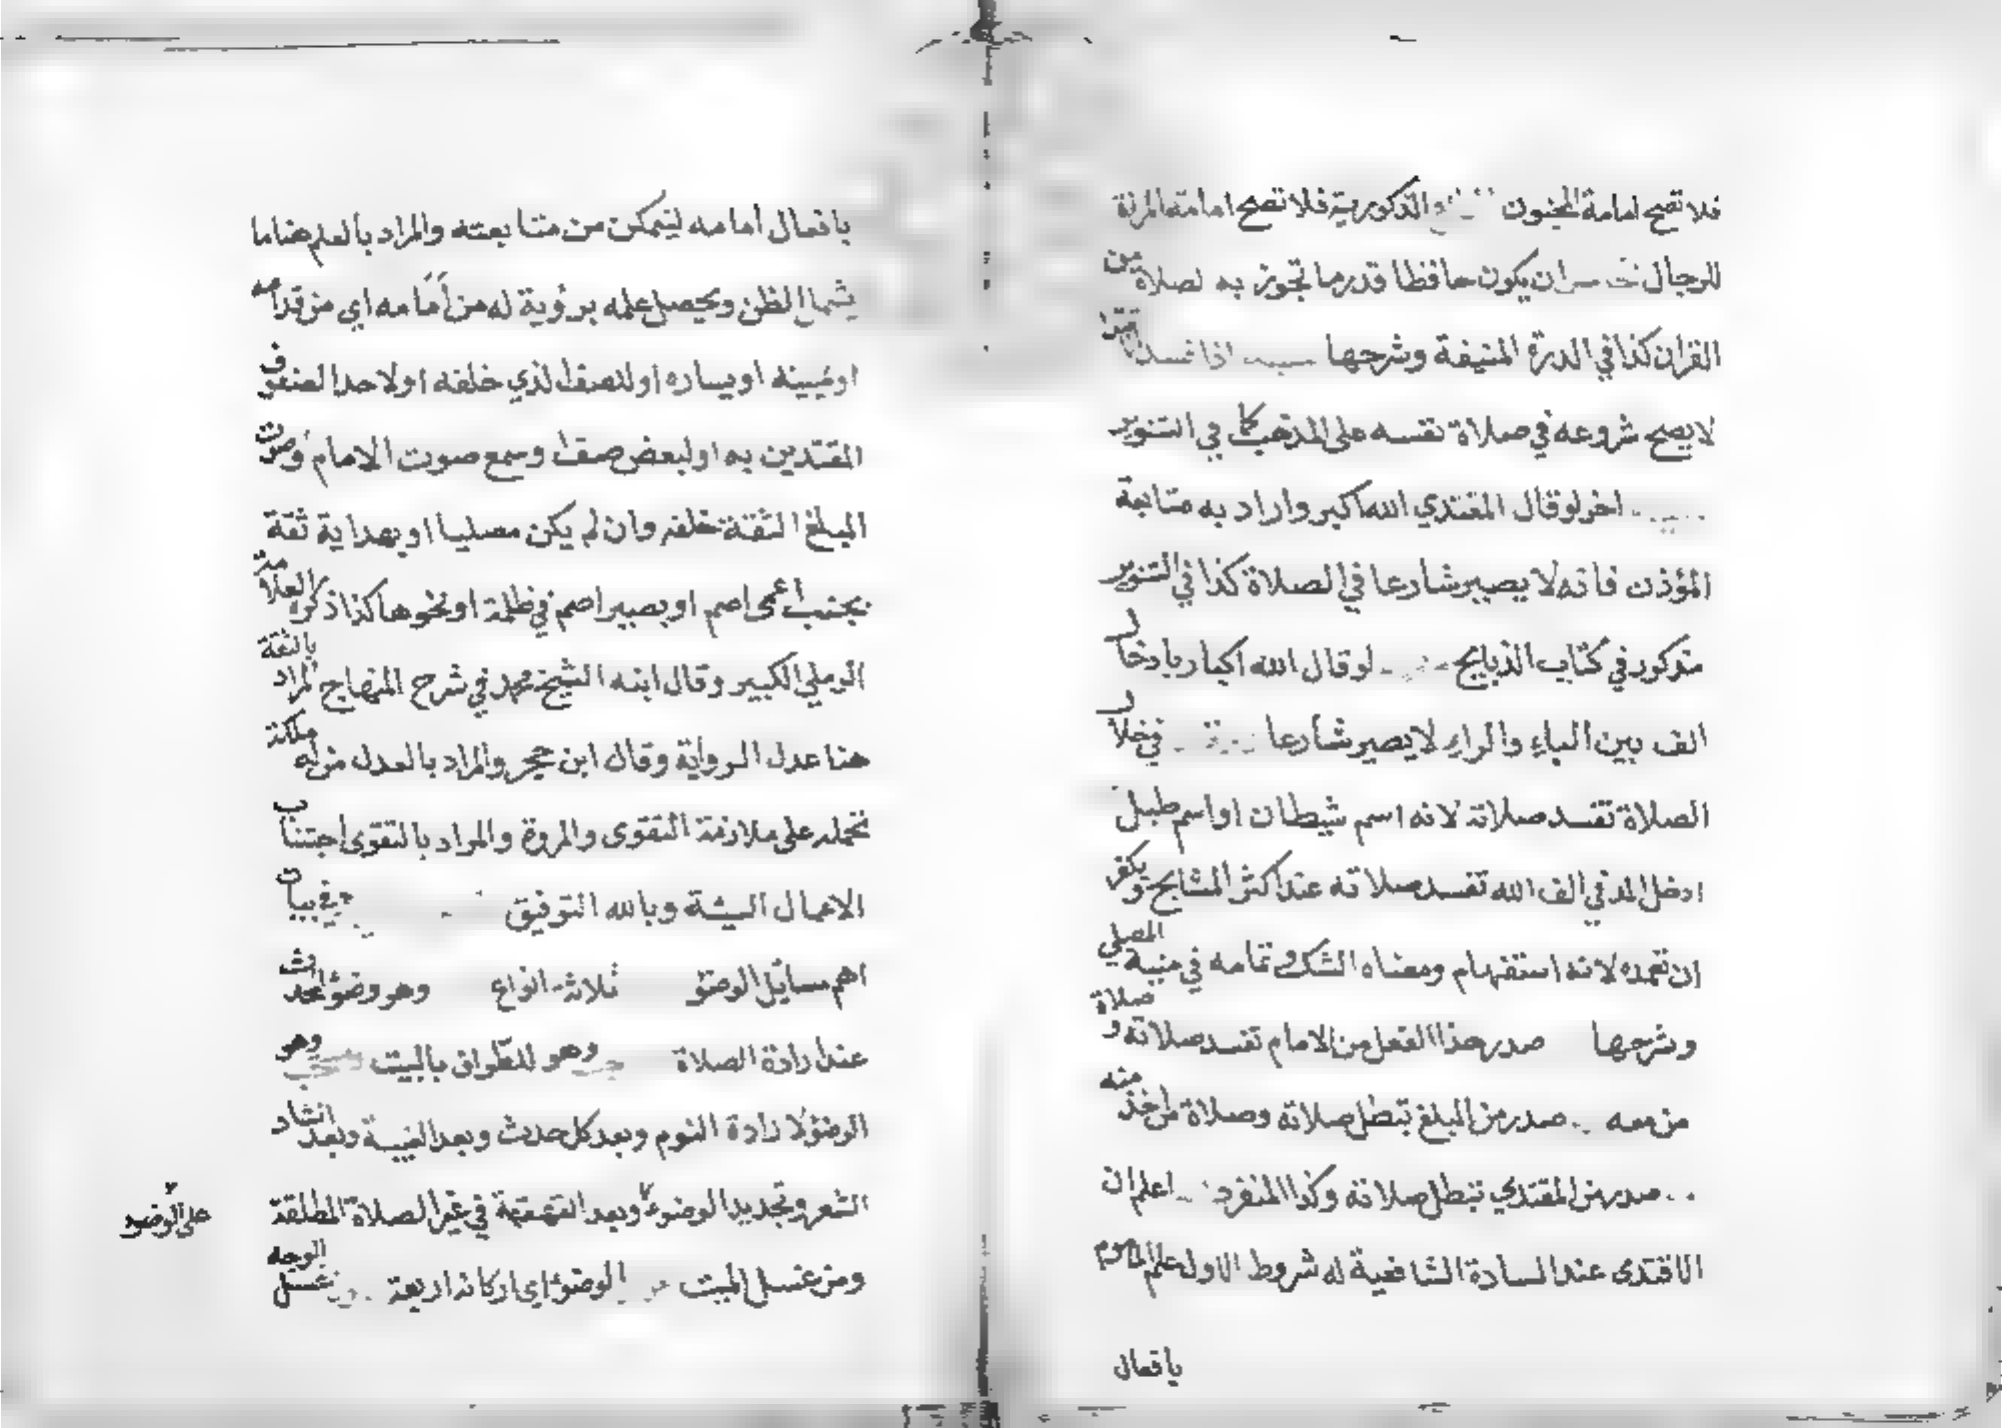 فلا تصح امامة المجنون والذكورية فلا تصح امامة المراة
للرجال ان يكون حافظا قدر ما تجوز به الصلاة من
القران كذا في الدرة المنيفة وشرحها اذا فسد
لا يصح شروعه في صلاة نفسه على المذهب كما في التنوير
اخر لو قال المقتدي الله اكبر واراد به متابعة
المؤذن فانه لا يصير شارعا في الصلاة كذا في التنوير
مذكور في كتاب الذبايح لو قال الله اكبار بادخال
الف بين الباء والراء لا يصير شارعا في خلال
الصلاة تفسد صلاته لانه اسم شيطان او اسم طبل
ادخل المد في الف الله تفسد صلاته عند اكثر المشايخ ويكفر
ان تعمده لانه استفهام ومعناه الشك وتمامه في منية المصلي
وشرحها صدر هذا الفعل من الامام تفسد صلاته وصلاة
من معه صدر من المبلغ تبطل صلاته وصلاة من اخذ منه
صدر من المقتدي تبطل صلاته وكذا المنفرد اعلم ان
الاقتدى عند السادة الشافعية له شروط الاول علم الماموم
بافعال
بافعال امامه ليتمكن من متابعته والمراد بالعلم هنا ما
يشمل الظن ويحصل علمه برؤية له من أمامه اي من قدامه
او يمينه او يساره او للصف الذي خلفه او لاحد الصفوف
المقتدين به او لبعض صف او سمع صوت الامام وصوت
المبلغ الثقة خلفه وان لم يكن مصليا او بهداية ثقة
بجنب اعمى اصم او بصير اصم في ظلمة او نحوها كذا ذكره العلامة
الرملي الكبير وقال ابنه الشيخ محمد في شرح المنهاج المراد بالثقة
هنا عدل الرواية وقال ابن حجر والمراد بالعدل من له ملكة
تحمله على ملازمة التقوى والمروة والمراد بالتقوى اجتناب
الاعمال السيئة وبالله التوفيق في بيان
اهم مسايل الوضؤ ثلاثة انواع وهو وضؤ المحدث
عند ارادة الصلاة وهو للطواف بالبيت وهو
الوضؤ لارادة النوم وبعد كل حدث وبعد الغيبة وبعد انشاد
الشعر وتجديد الوضوء وبعد القهقهة في غير الصلاة المطلقة
على الوضوء
ومن غسل الميت الوضؤ اي اركانه اربعة غسل الوجه